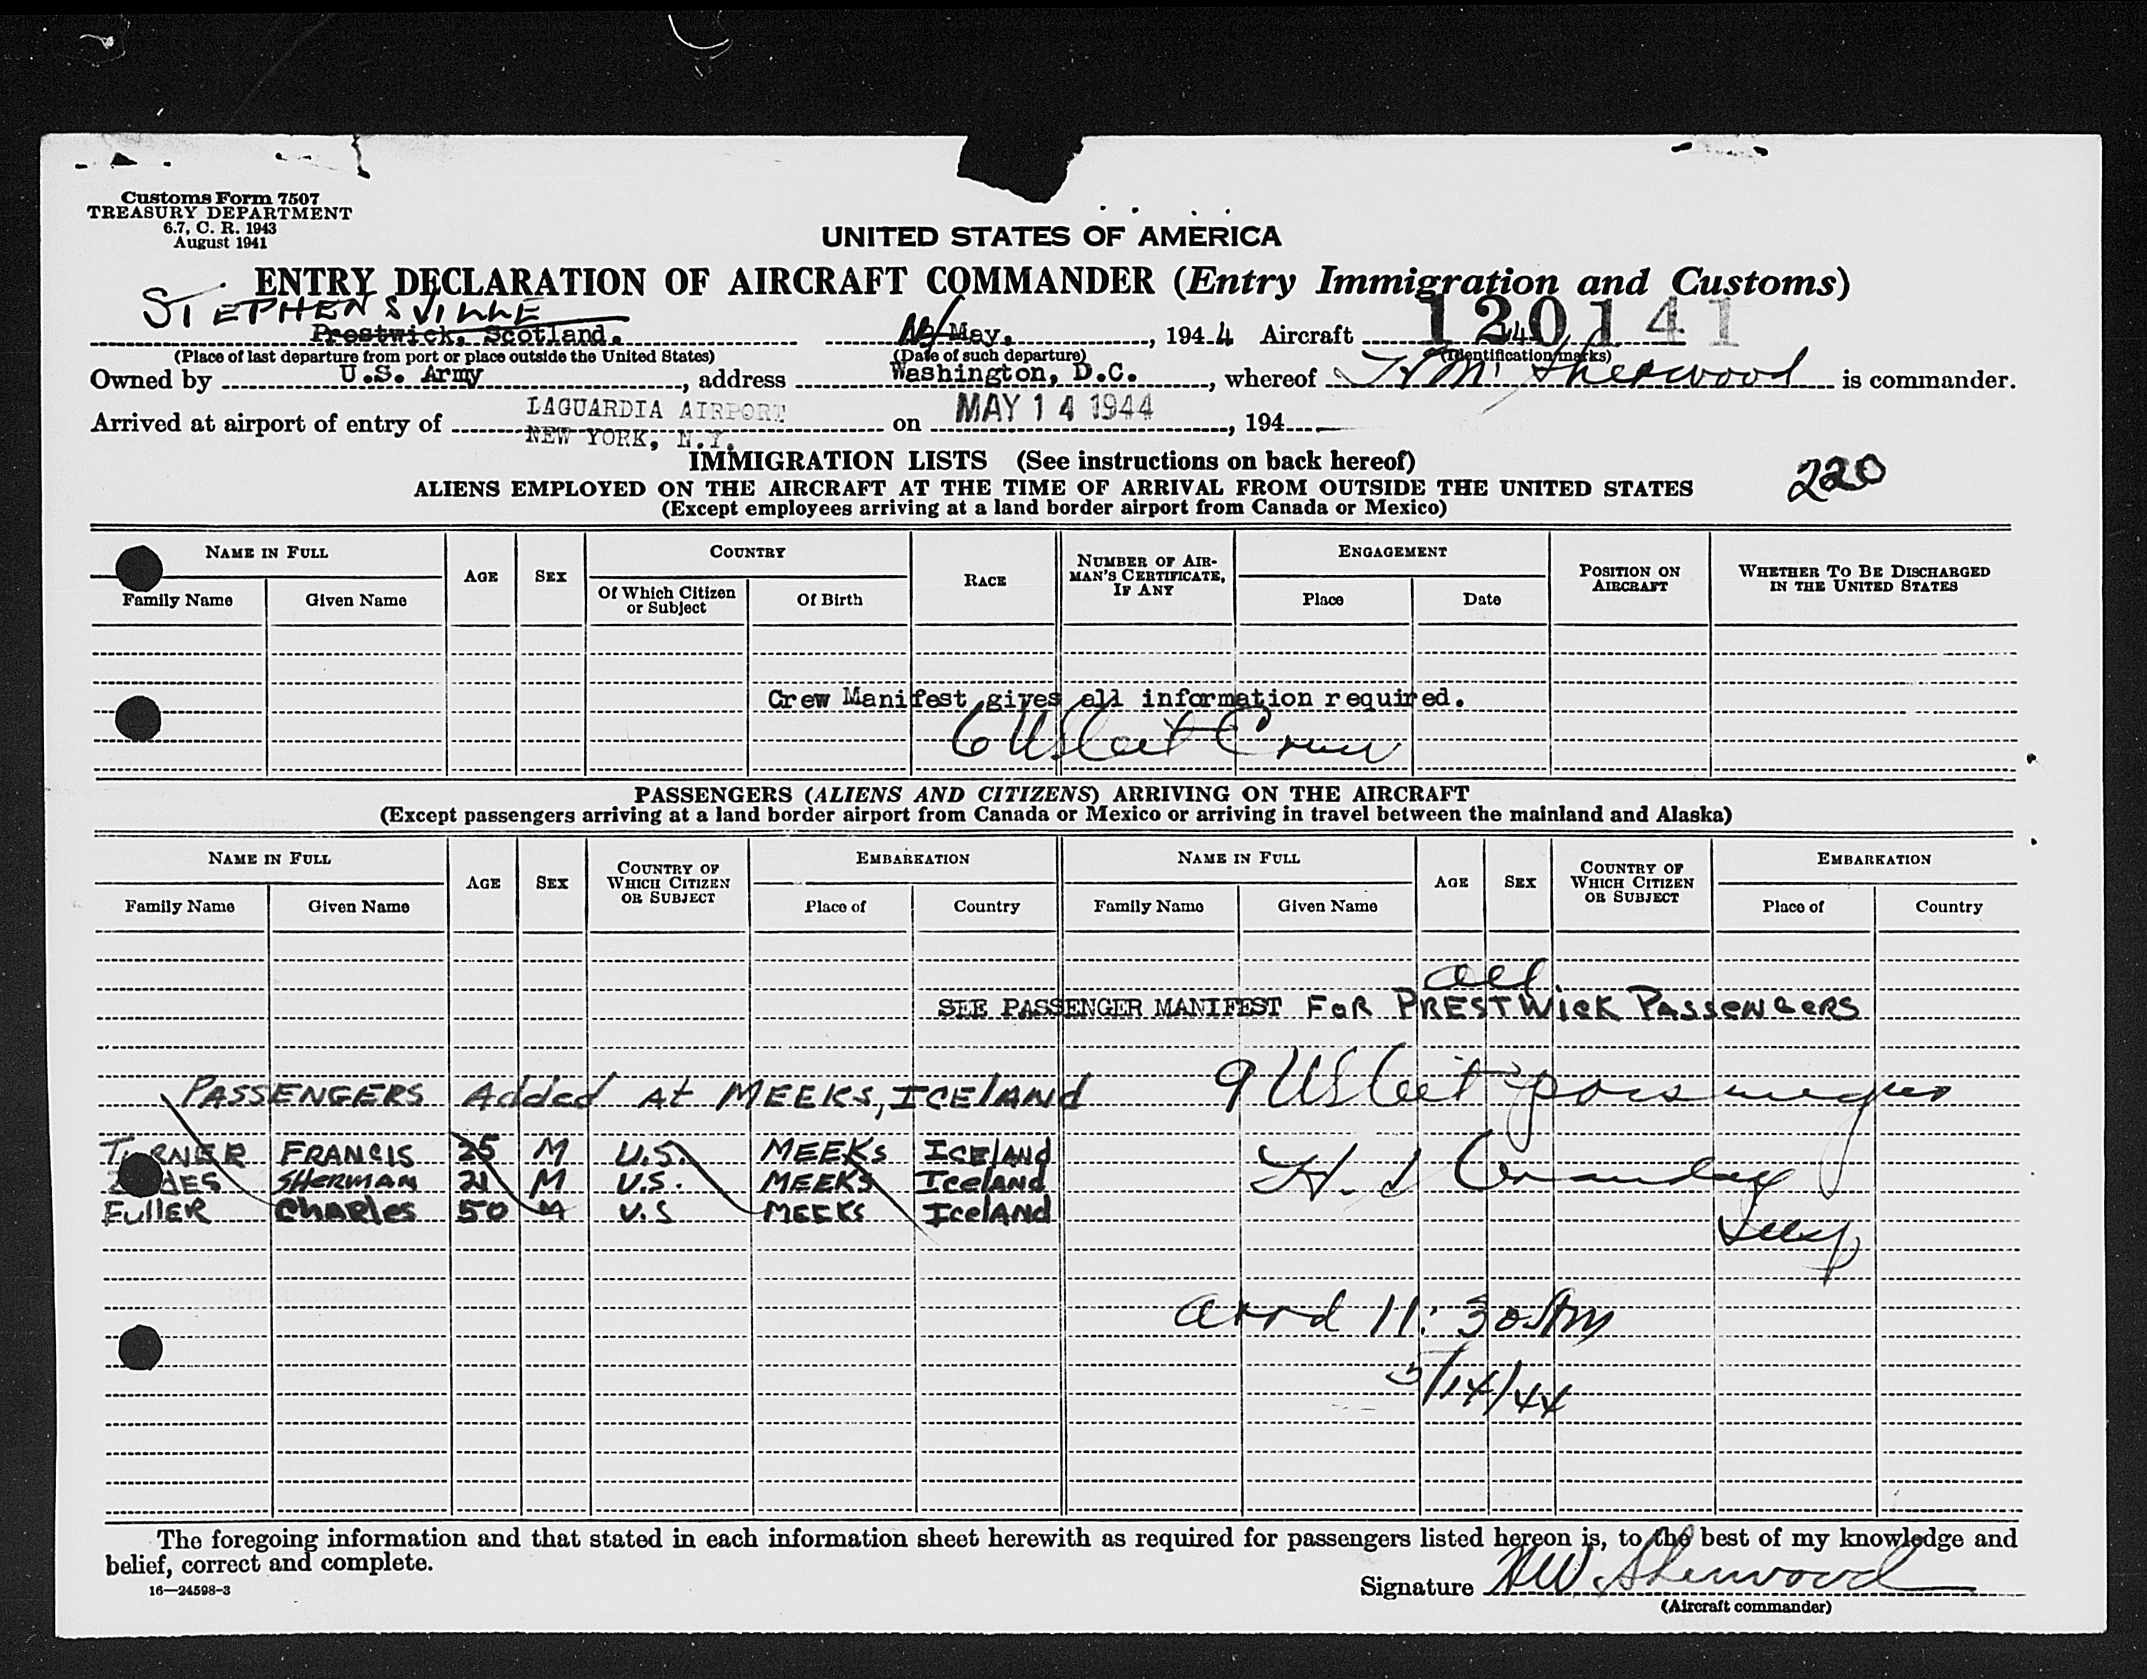 Customs Form 7507
TREASURY DEPARTMENT
6.7, C. R. 1943
August 1941
UNITED STATES OF AMERICA
ENTRY DECLARATION OF AIRCRAFT COMMANDER (Entry Immigration and Customs)
STEPHENSVILLE
120141
Prestwick, Scotland. May, 1944 Aircraft
(Place of last departure from port or place outside the United States) (Date of such departure) (Identification marks)
Owned by U.S. Army, address Washington, D.C., whereof Sherwood is commander.
LAGUARDIA AIRPORT
Arrived at airport of entry of NEW YORK, N.Y. on MAY 14 1944, 194
IMMIGRATION LISTS (See instructions on back hereof)
220
ALIENS EMPLOYED ON THE AIRCRAFT AT THE TIME OF ARRIVAL FROM OUTSIDE THE UNITED STATES
(Except employees arriving at a land border airport from Canada or Mexico)
NAME IN FULL AGE SEX COUNTRY RACE NUMBER OF AIRMAN'S CERTIFICATE, IF ANY ENGAGEMENT POSITION ON AIRCRAFT WHETHER TO BE DISCHARGED IN THE UNITED STATES
Family Name Given Name Of Which Citizen or Subject Of Birth Place Date
Crew Manifest gives all information required.
6 US Cit Crew
PASSENGERS (ALIENS AND CITIZENS) ARRIVING ON THE AIRCRAFT
(Except passengers arriving at a land border airport from Canada or Mexico or arriving in travel between the mainland and Alaska)
NAME IN FULL AGE SEX COUNTRY OF WHICH CITIZEN OR SUBJECT EMBARKATION NAME IN FULL AGE SEX COUNTRY OF WHICH CITIZEN OR SUBJECT EMBARKATION
Family Name Given Name Place of Country Family Name Given Name Place of Country
all
SEE PASSENGER MANIFEST FOR PRESTWICK PASSENGERS
9 US Cit passengers
PASSENGERS Added At MEEKS, ICELAND
TURNER FRANCIS 25 M U.S. MEEKS ICELAND
SHERMAN 21 M U.S. MEEKS ICELAND
FULLER CHARLES 50 M U.S MEEKS ICELAND
Insp
arrd 11:30 AM
5/14/44
The foregoing information and that stated in each information sheet herewith as required for passengers listed hereon is, to the best of my knowledge and
belief, correct and complete.
16—24598-3
Signature HW Sherwood
(Aircraft commander)